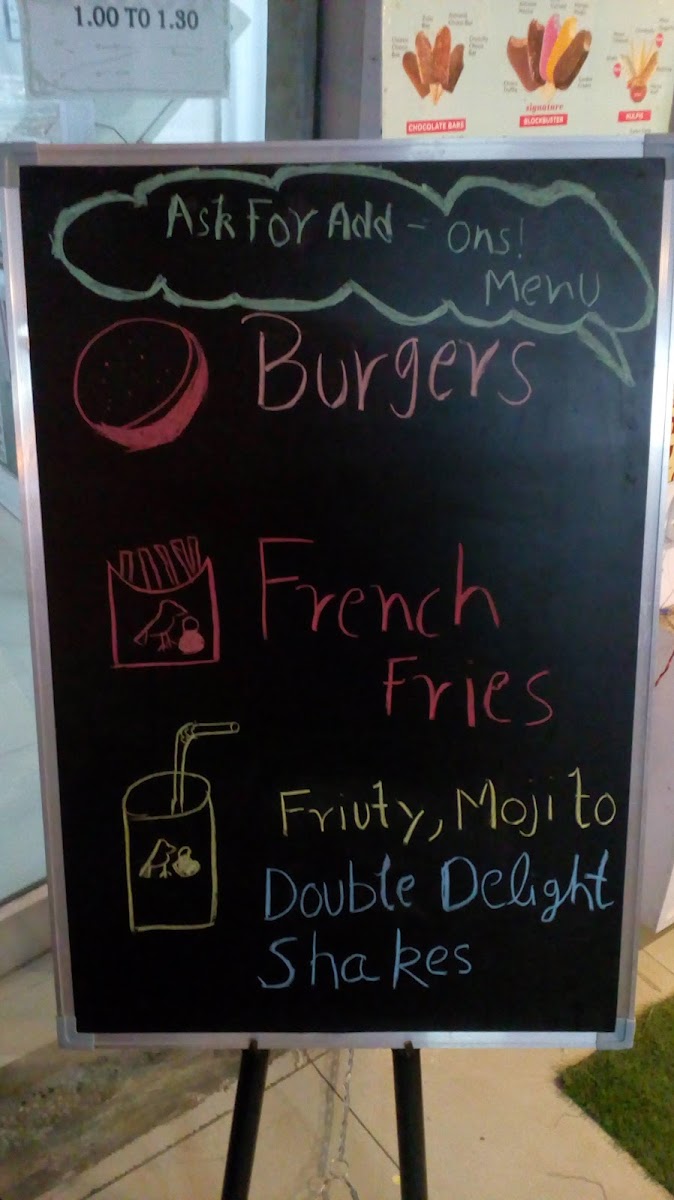 1.00 TO 1.30
CHOCOLATE BARS
signature
BLOCKBUSTER
KULFIS
Ask For Add - ons!
Menu
Burgers
French
Fries
Friuty, Mojito
Double Delight
Shakes